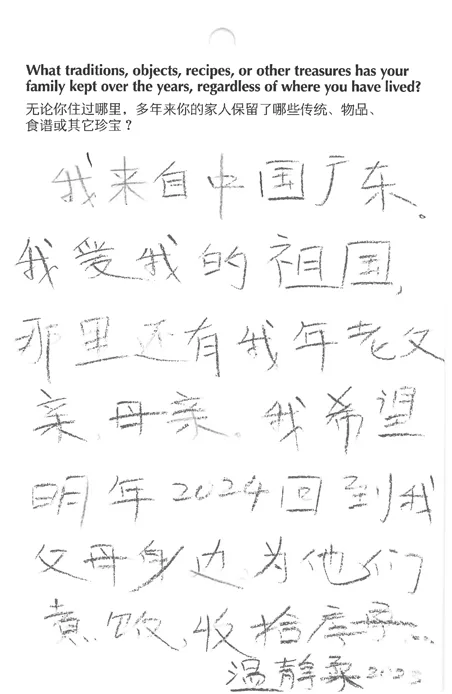 What traditions, objects, recipes, or other treasures has your
family kept over the years, regardless of where you have lived?
无论你住过哪里，多年来你的家人保留了哪些传统、物品、
食谱或其它珍宝？
我来自中国广东。
我爱我的祖国，
那里还有我年老父
亲、母亲。我希望
明年2024回到我
父母身边，为他们
煮饭，收拾
温静柔 2023